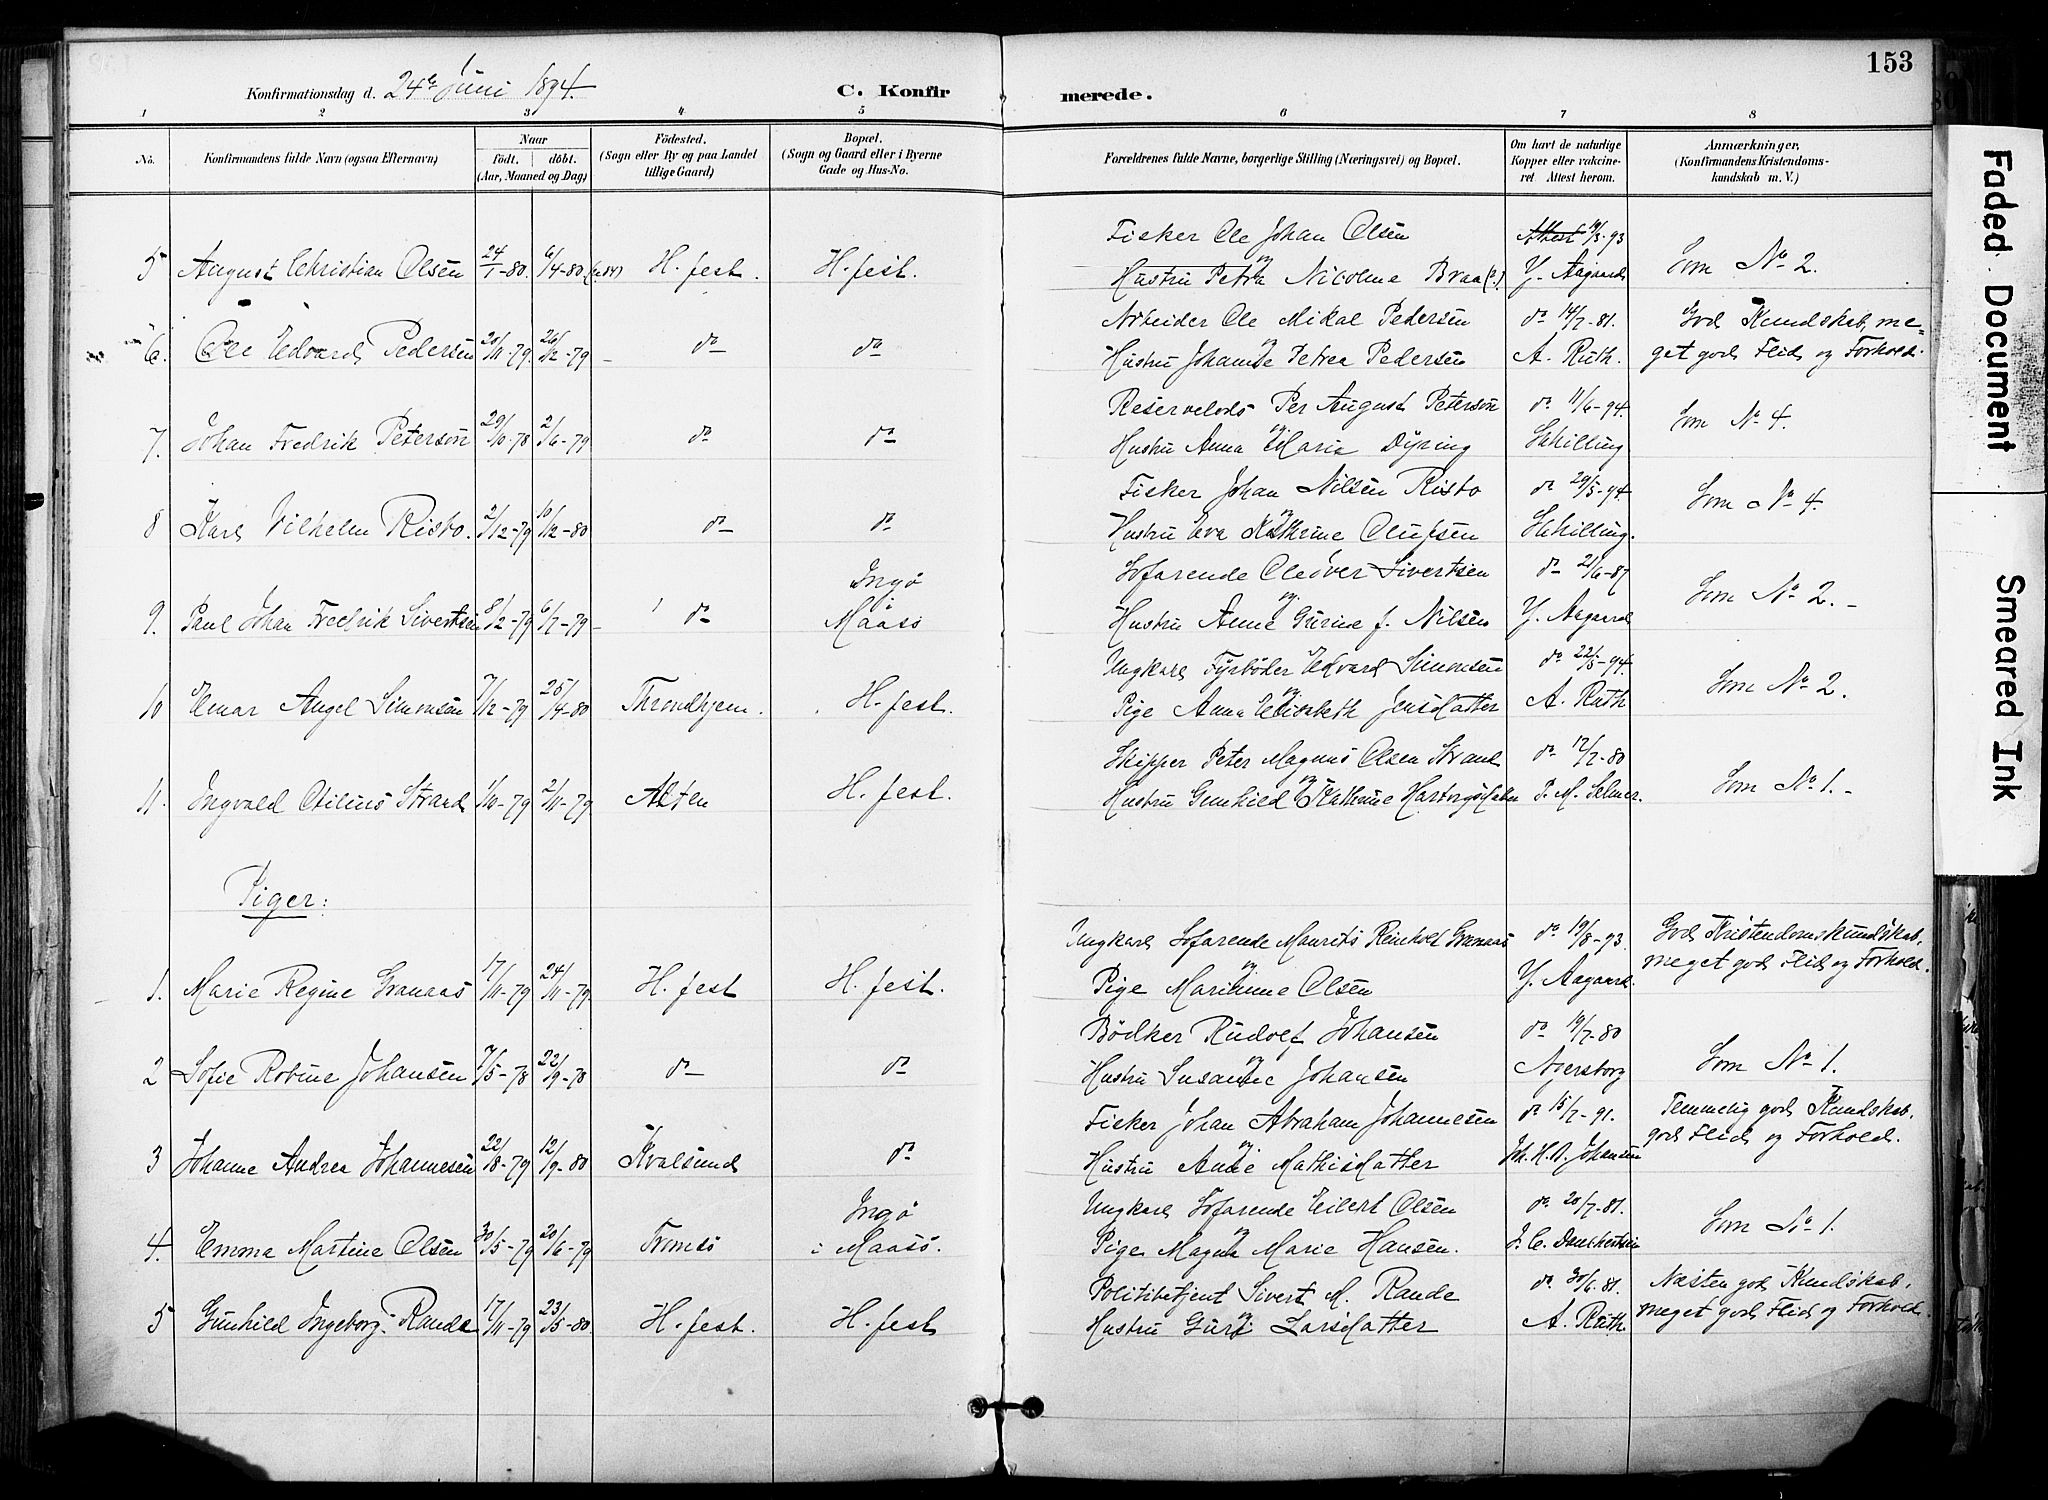 153
Konfirmationsdag d. 24de Juni 1894.
C. Konfirmerede.
1 2 3 4 5 6 7 8
No.
Konfirmandens fulde Navn (ogsaa Efternavn)
Naar
födt. döbt.
(Aar, Maaned og Dag)
Födested.
(Sogn eller By og paa Landet
tillige Gaard)
Bopæl.
(Sogn og Gaard eller i Byerne
Gade og Hus-No.
Forældrenes fulde Navne, borgerlige Stilling (Næringsvei) og Bopæl.
Om havt de naturlige
Kopper eller vakcineret
Attest herom.
Anmærkninger,
(Konfirmandens Kristendomskundskab
m. V.)
5 August Christian Olsen 24/1-80. 6/4-80 H.fest. H.fest.
Fisker Ole Johan Olsen
og Hustru Petra Nicoline Braa(?)
Attest 19/3-93
Y. Aagaard
Som No 2.
6. Ole Edvard Pedersen 20/11-79. 26/12-79 do do
Arbeider Ole Mikal Pedersen
og Hustru Johanne Petrea Pedersen
do 14/7-81.
A. Ruth.
God Kundskab, meget
god Flid og Forhold.
7. Johan Fredrik Peterson 29/10-78 2/6-79 do do
Reservelods Per August Peterson
og Hustru Anna Maria Dyring
do 11/6-94.
Schilling
Som No 4.
8 Karl Vilhelm Risto. 2/12-79 10/12-80 do do
Fisker Johan Nilsen Risto
og Hustru Eva Kathrine Olufsen
do 29/5-94.
Schilling.
Som No 4.
9. Paul Johan Fredrik Sivertsen 8/2-79 6/7-79 do
Ingö
i Maasö
Söfarende Oleöver Sivertsen
og Hustru Anne Gurine f. Nilsen
do 21/6-87
Y. Aagaard
Som No 2.
10 Einar Angel Simonsen 7/12-79 25/4-80 Throndhjem. H.fest.
Ungkarl Fyrböder Edvard Simonsen
og Pige Anna Elisabeth Jensdatter
do 22/5-94.
A. Ruth
Som No 2.
11. Ingvald Otilius Strand 1/10-79 2/11-79 Alten H.fest.
Skipper Peter Magnus Olsen Strand
og Hustru Gunhild Kathrine
do 17/7-80
P. M. Selmer.
Som No 1.
Piger:
1. Marie Regine Granaas 17/11-79 24/11-79. H.fest H.fest.
Ungkarl Söfarende Maurits Reinholt Granaas
og Pige Marianne Olsen
do 19/8-93
Y. Aagaard.
God Kristendomskundskab,
meget god Flid og Forhold.
2 Sofie Robine Johansen 7/5-78 22/9-78 do do
Bödker Rudolf Johansen
og Hustru Susanne Johansen
do 19/7-80
Agersborg
Som No 1.
3 Johanne Andrea Johannesen 22/8-79 12/9-80 Kvalsund do
Fisker Johan Abraham Johannesen
og Hustru Anne Mathisdatter
do 15/7-91.
Joh. H. A. Johansen
Temmelig god Kundskab,
god Flid og Forhold.
4. Emma Martine Olsen 30/5-79 20/6-79 Tromsö
Ingö
i Maasö.
Ungkarl Söfarende Eilert Olsen
og Pige Magna Marie Hansen.
do 20/7-81.
J. C. Danchertsen
Som No 1.
5 Gunhild Ingeborg Rande 17/11-79 23/5-80. H.fest. H.fest
Politibetjent Sivert M. Rande
og Hustru Guri Larsdatter
do 30/6-81.
A. Ruth.
Næsten god Kundskab,
meget god Flid og Forhold.
Faded Document
Smeared Ink